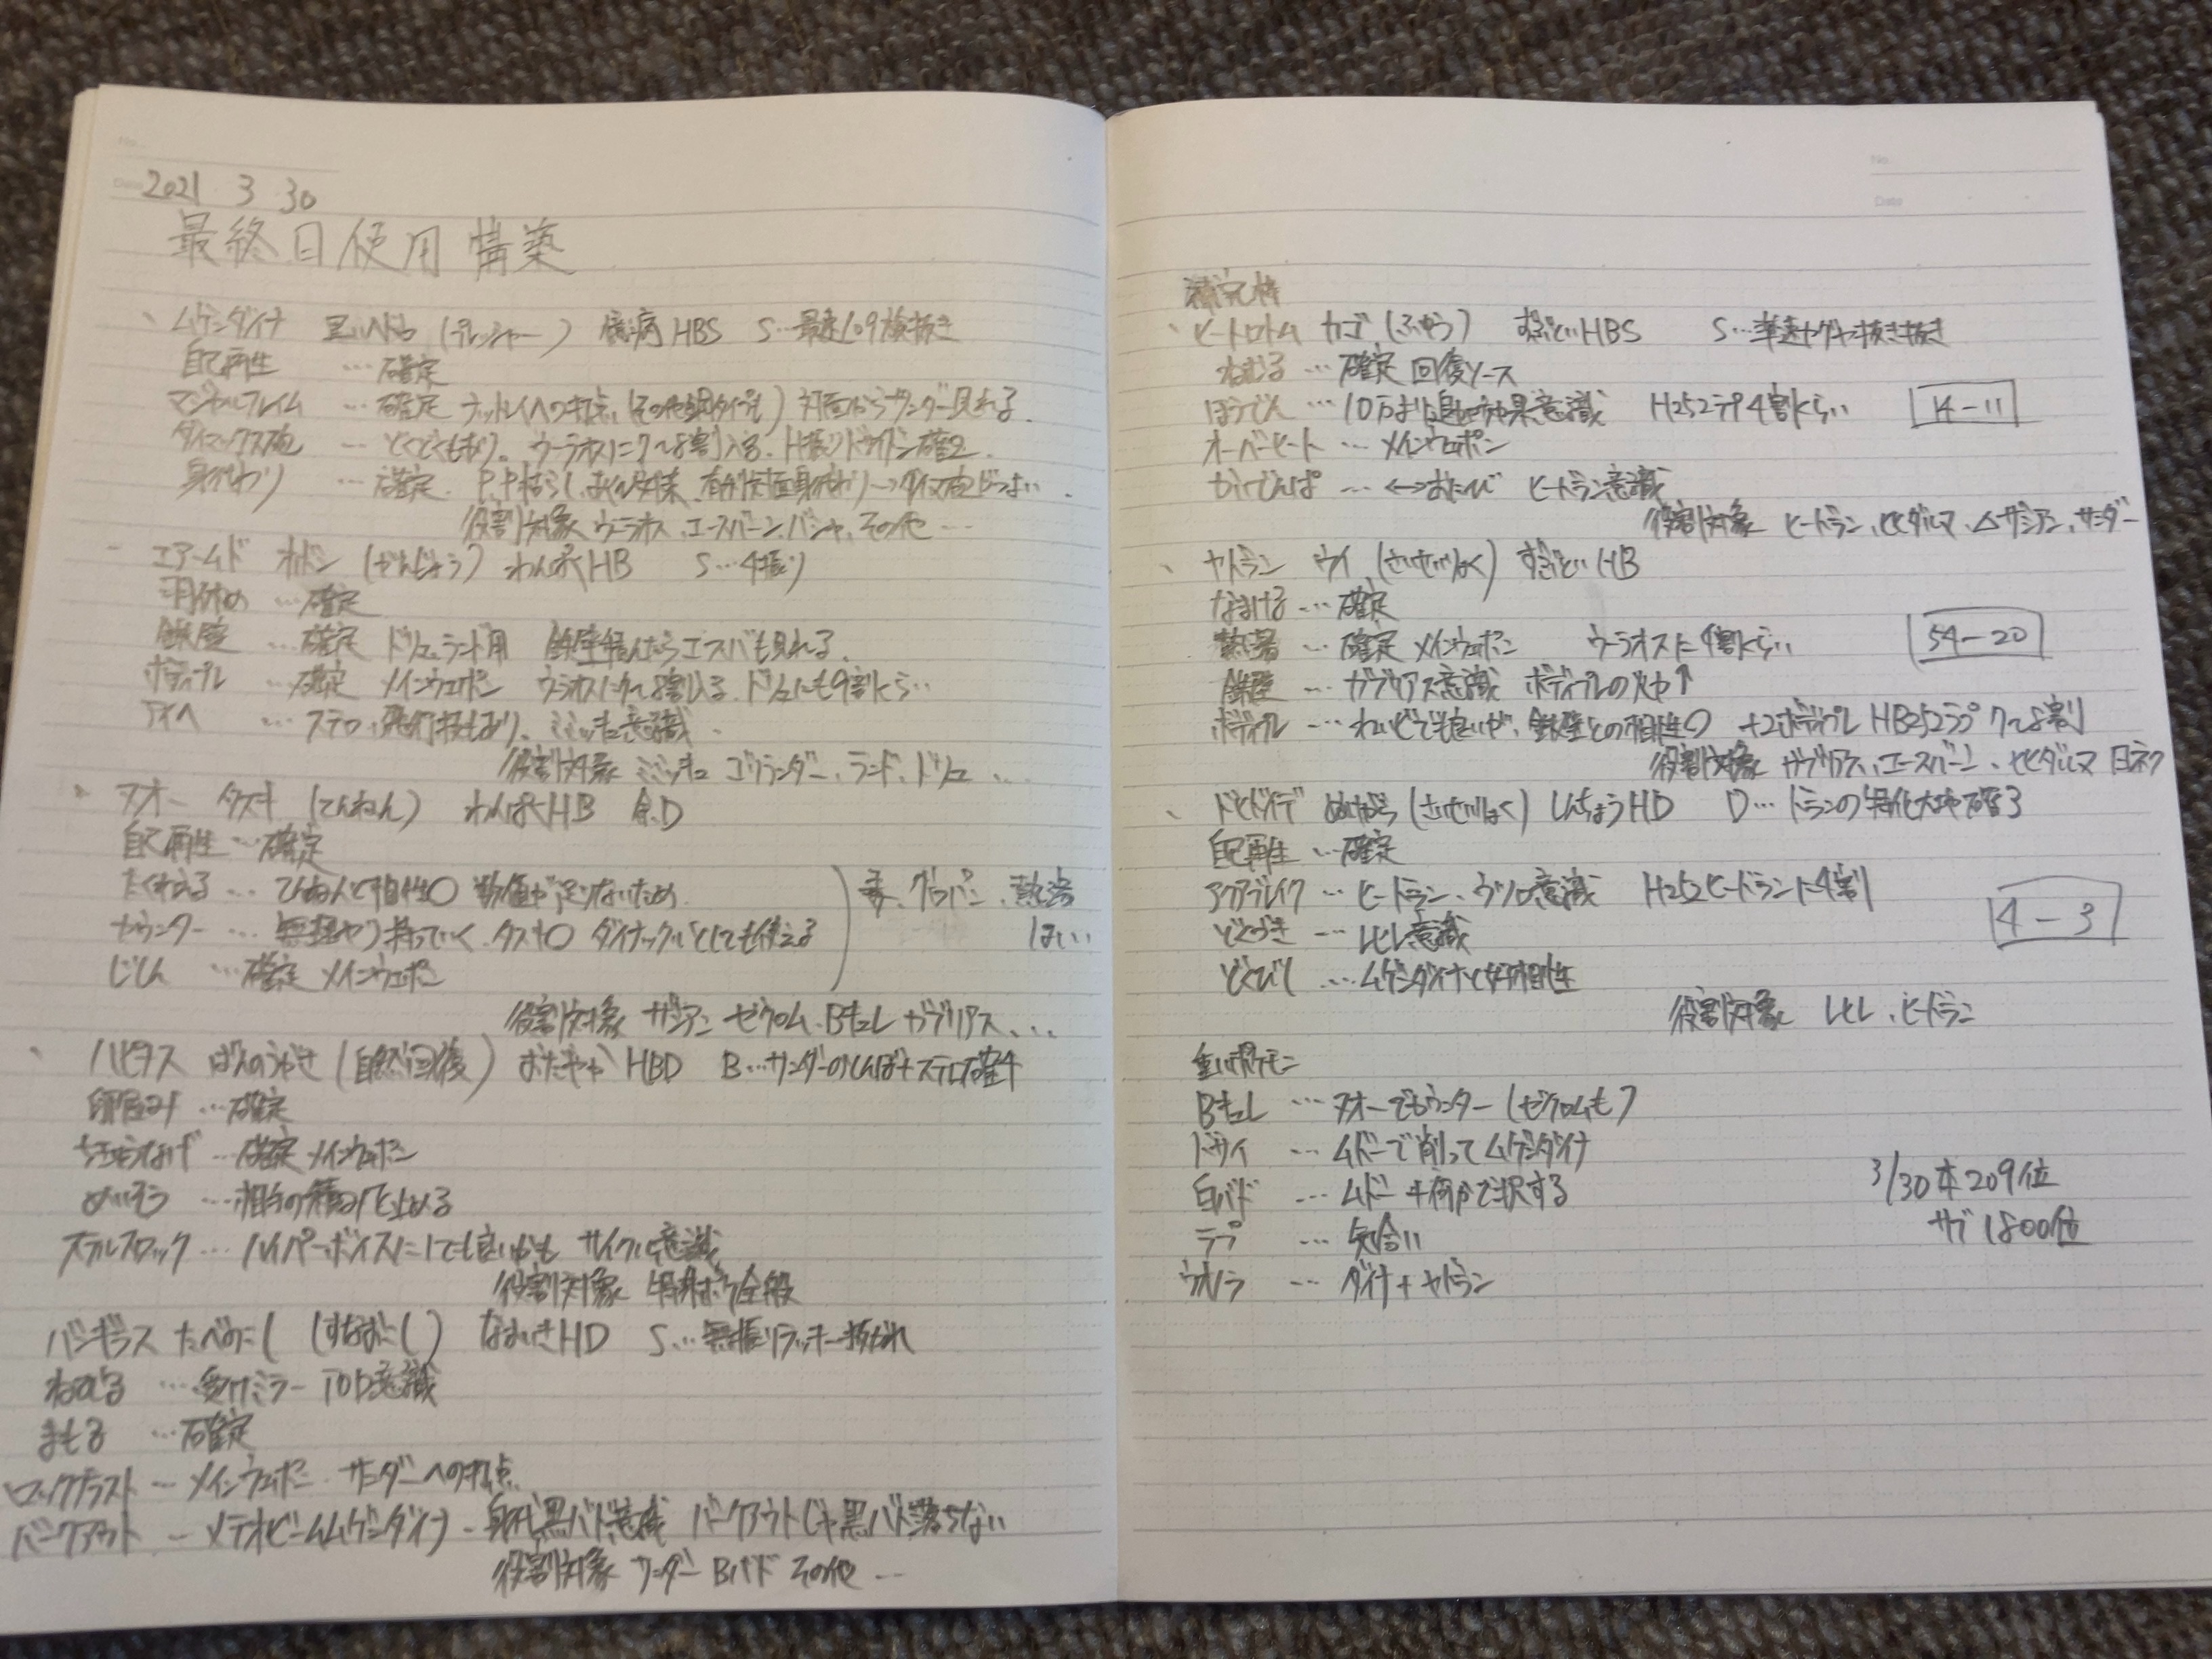 2021 3 30
最終日使用構築
ムゲンダイナ 黒いヘドロ (プレッシャー) 臆病HBS S…最速109族抜き
自己再生 …確定
マジカルフレイム …確定 ナットレイへの打点(その他鋼タイプも) 対面からサンダー見れる.
ダイマックス砲 …どくどくもあり。ウーラオスに7~8割入る. H振りドサイドン確2.
身代わり …確定. P.P枯らし、あくび対策. 有利対面身代わり→ダイマ砲がつよい.
役割対象 ウーラオス、エースバーン、バシャ、その他…
エアームド オボン (がんじょう) わんぱくHB S…4振り
羽休め …確定
鉄壁 …確定 ドリュ、ランド用 鉄壁積んだらエスバも見れる.
ボディプレ …確定 メインウェポン ウーラオスに7~8割入る. ドリュにも9割くらい
アイヘ …ステロ、飛行技もあり。ミミッキュ意識.
役割対象 ミミッキュ ゴリランダー、ランド、ドリュ…
ヌオー タスキ (てんねん) わんぱくHB 余D
自己再生 …確定
たくわえる …てんねんと相性○ 数値が足りないため.
カウンター …無理やつ持っていく. タスキ○ ダイナックルとしても使える
毒、グロパン、熱湯 ほしい
じしん …確定 メインウェポン
役割対象 ザシアン ゼクロム、Bキュレ ガブリアス、…
ハピナス ばんのうがさ (自然回復) おだやかHBD B…サンダーのぼうふう+ステロ確4
卵産み …確定
ちきゅうなげ …確定 メインウェポン
めいそう …相手の積み止める
ステルスロック …ハイパーボイスにしても良いかも サイクル意識
役割対象 特殊ポケ全般
バンギラス たべのこし (すなおこし) なまいきHD S…無振りラッキー抜かれ
ねむる …受けミラー TOD意識
まもる …確定
ロックブラスト …メインウェポン. サンダーへの打点.
バークアウト …メテオビームムゲンダイナ、身代黒バド意識 バークアウトじゃ黒バド落ちない
役割対象 サンダー Bバド その他…
補完枠
ヒートロトム カゴ (ふゆう) ずぶといHBS S…準速ナグ抜き抜き
ねむる …確定 回復ソース
ほうでん …10万より追加効果意識 H252テテフ4割くらい
14-11
オーバーヒート …メインウェポン
かいでんぱ …←→おにび ヒートラン意識
役割対象 ヒートラン、ヒヒダルマ、△ザシアン、サンダー
ヤドラン ウイ (さいせいりょく) ずぶといHB
なまける …確定
熱湯 …確定 メインウェポン ウーラオスに4割くらい
54-20
鉄壁 …ガブリアス意識 ボディプレの火力↑
ボディプレ …れいどでも良いが、鉄壁との相性○ +2ボディプレ HB252ラプ7~8割
役割対象 ガブリアス、エースバーン、ヒヒダルマ 日ネク
ドヒドイデ (さいせいりょく) しんちょうHD D…ドランの特化大地確3
自己再生 …確定
アクアブレイク …ヒートラン、ウツロ意識 H252ヒードランに4割
4-3
どくづき …レヒレ意識
どくびし …ムゲンダイナと好相性
役割対象 レヒレ、ヒートラン
重いポケモン
Bキュレ …ヌオーでカウンター (ゼクロムも)
ドサイ …ムドーで削ってムゲンダイナ
白バド …ムドー+何かで択する
3/30本209位
ラプ …気合い
サブ1800位
ウオノラ …ダイナ+ヤドラン